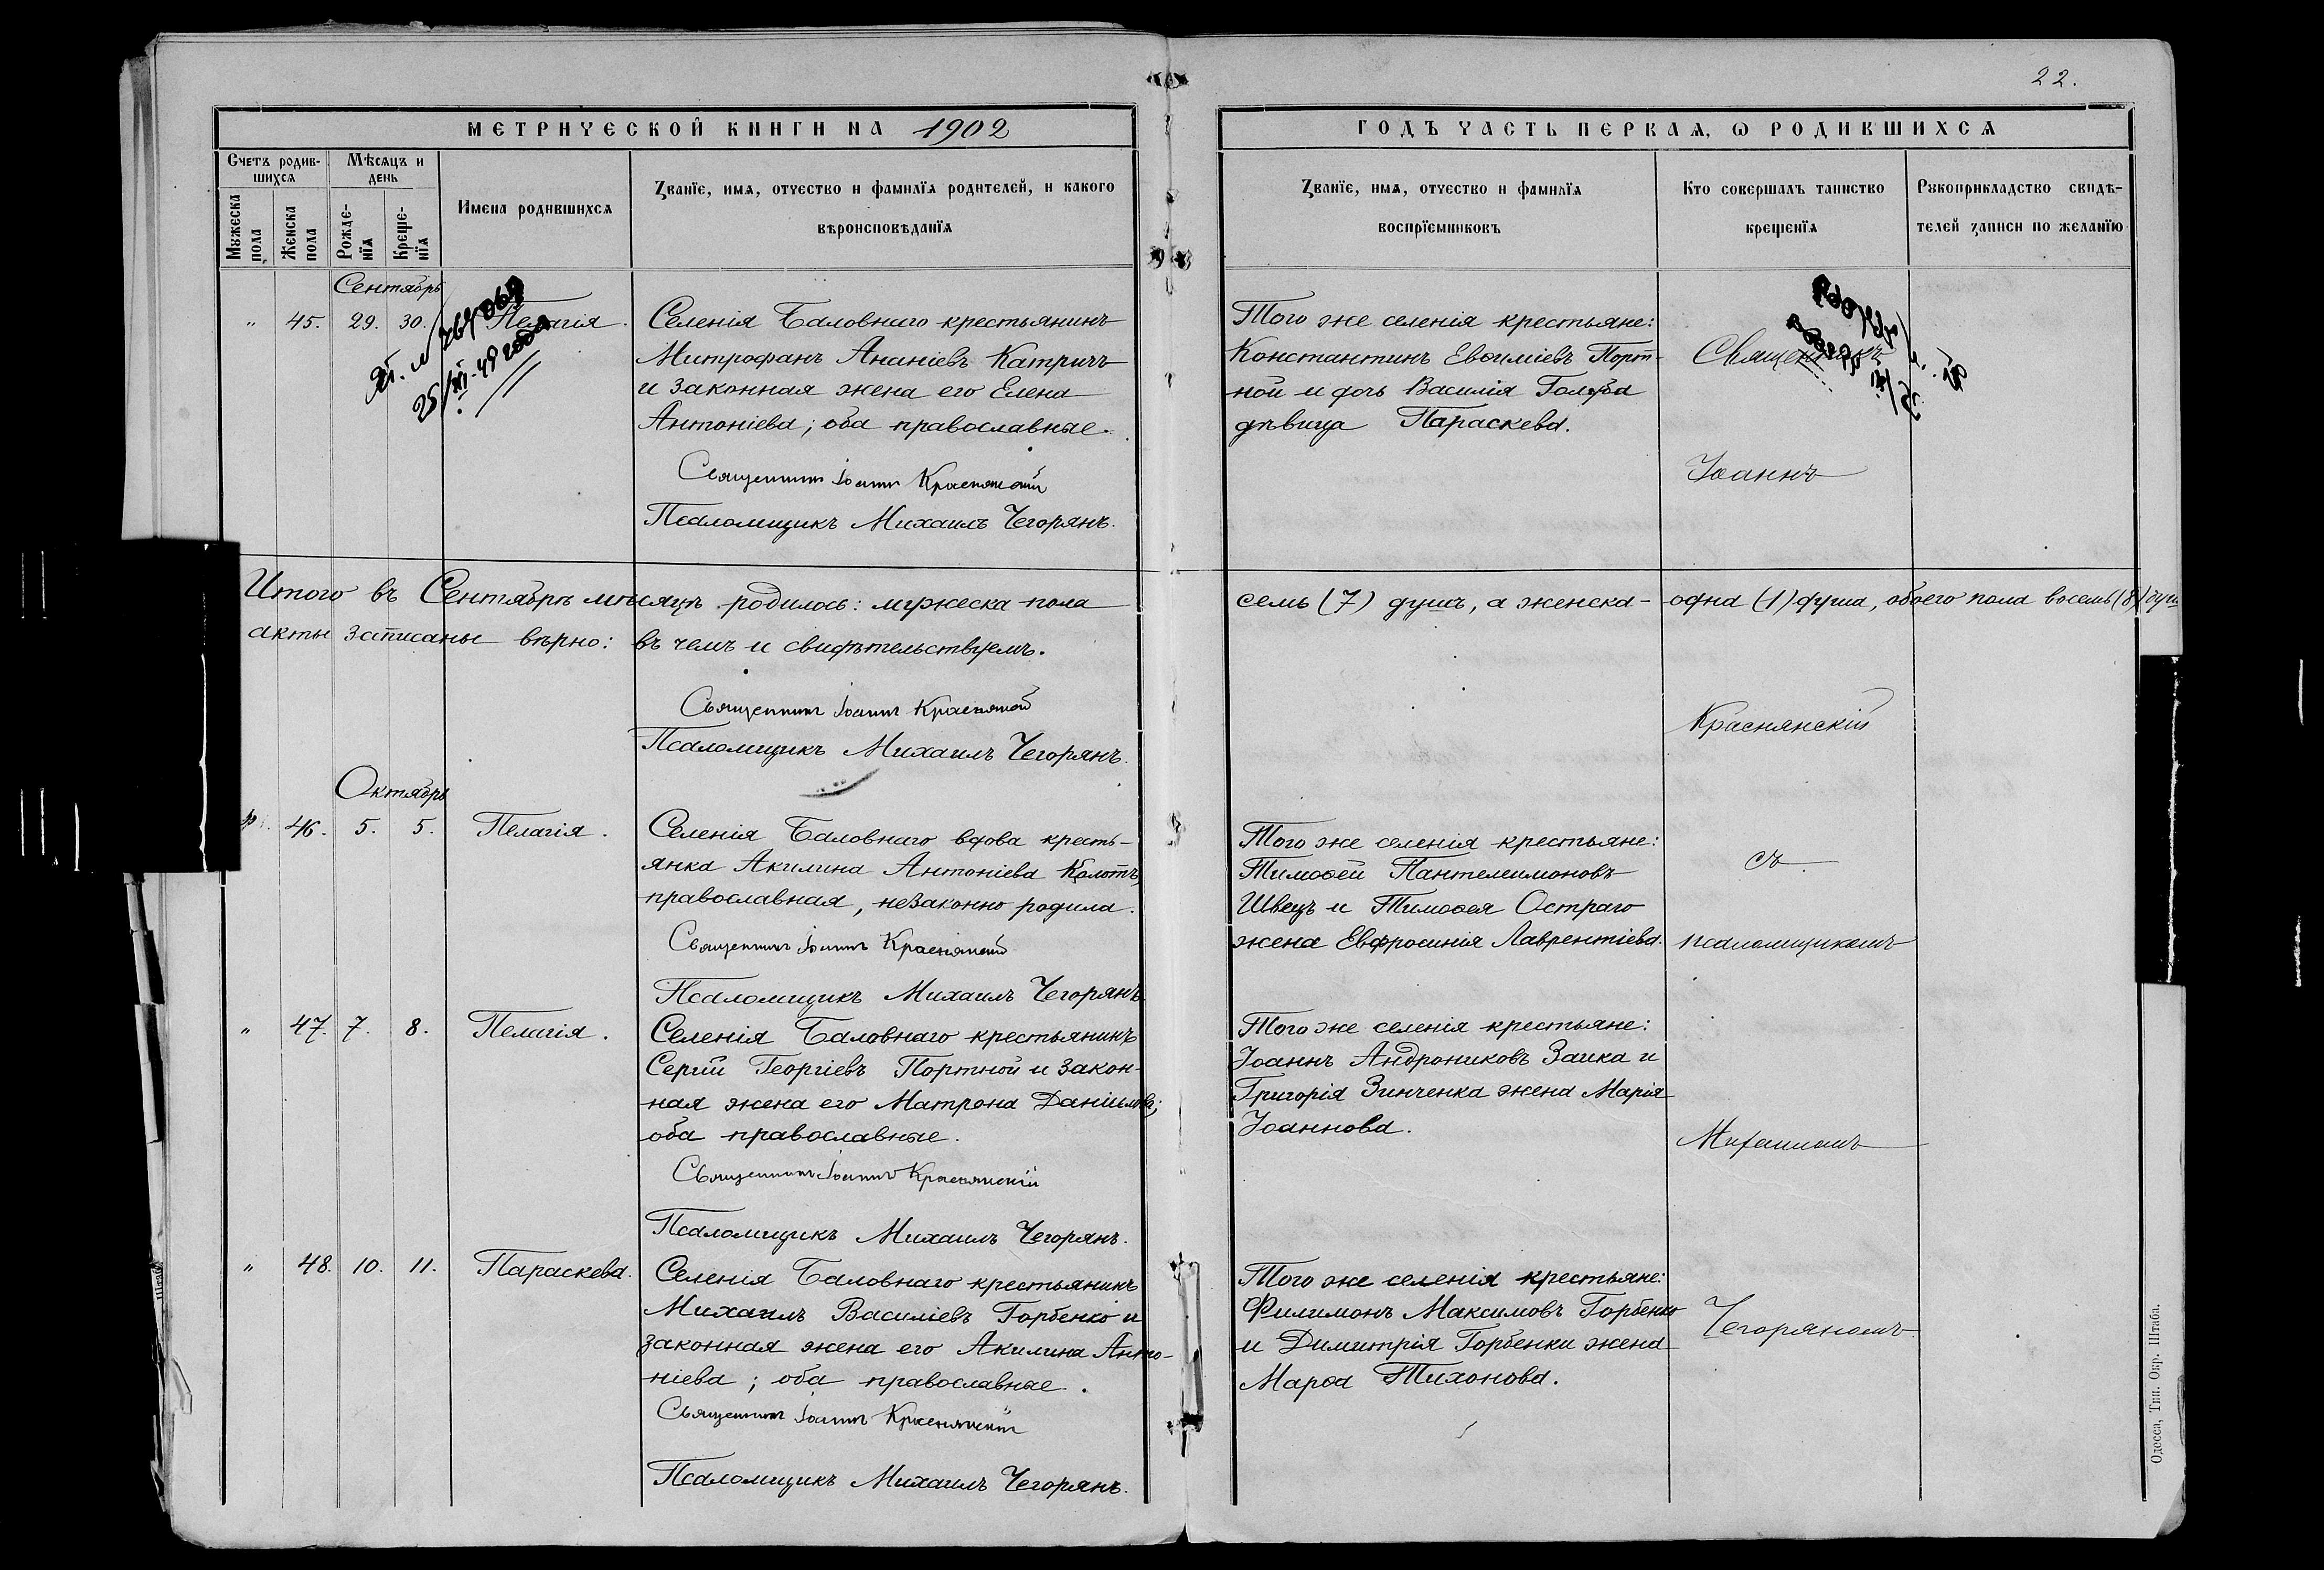 22.
МЕТРИЧЕСКОЙ КНИГИ НА 1902
ГОДЪ ЧАСТЬ ПЕРВАЯ, Ѡ РОДИВШИХСЯ
Счетъ родив-
шихся
Мужеска
пола
Женска
пола
Мѣсяцъ и
день
Рожде-
нїя
Креще-
нїя
Имена родившихся
Званїе, имя, отчество и фамилїя родителей, и какого
вѣроисповѣданїя
Званїе, имя, отчество и фамилїя
воспрїемниковъ
Кто совершалъ таинство
крещенїя
Рукоприкладство свидѣ-
телей записи по желанїю
Сентябрь
" 45. 29. 30. Пелагія.
25/XI-49 года
Селенія Баловнаго крестьянинъ
Митрофанъ Ананіевъ Катричъ
и законная жена его Елена
Антоніева; оба православные.
Священникъ Іоаннъ Краснянскій
Псаломщикъ Михаилъ Чегорянъ.
Того же селенія крестьяне:
Константинъ Евѳиміевъ Порт-
ной и дочь Василія Голуба
дѣвица Параскева.
Священникъ
Іоаннъ
Итого въ Сентябрѣ мѣсяцѣ родилось: мужеска пола семь (7) душъ, а женска- одна (1) душа, обоего пола восемь (8) душ
акты записаны вѣрно: въ чемъ и свидѣтельствуемъ.
Священникъ Іоаннъ Краснянскій
Псаломщикъ Михаилъ Чегорянъ.
Краснянскій
Октябрь
46. 5. 5. Пелагія.
Селенія Баловнаго вдова кресть-
янка Акилина Антоніева Колотъ,
православная, незаконно родила.
Священникъ Іоаннъ Краснянскій
Псаломщикъ Михаилъ Чегорянъ.
Того же селенія крестьяне:
Тимоѳей Пантелеимоновъ
Швецъ и Тимоѳея Остраго
жена Евфросинія Лаврентіева.
съ
псаломщикомъ
" 47. 7. 8. Пелагія.
Селенія Баловнаго крестьянинъ
Сергій Георгіевъ Портной и закон-
ная жена его Матрона Даніилова;
оба православные.
Священникъ Іоаннъ Краснянскій
Псаломщикъ Михаилъ Чегорянъ.
Того же селенія крестьяне:
Іоаннъ Андрониковъ Заика и
Григорія Зинченка жена Марія
Іоаннова.
Михаиломъ
" 48. 10. 11. Параскева.
Селенія Баловнаго крестьянинъ
Михаилъ Василіевъ Горбенко и
законная жена его Акилина Анто-
ніева; оба православные.
Священникъ Іоаннъ Краснянскій
Псаломщикъ Михаилъ Чегорянъ.
Того же селенія крестьяне:
Филимонъ Максимовъ Горбенко
и Димитрія Горбенки жена
Марѳа Тихонова.
Чегоряномъ
Одесса, Тип. Окр. Штаба.